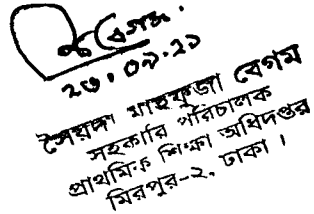 বেগম
২৩.০৯.২১
সৈয়দা মাহফুজা বেগম
সহকারি পরিচালক
প্রাথমিক শিক্ষা অধিদপ্তর
মিরপুর-২, ঢাকা।